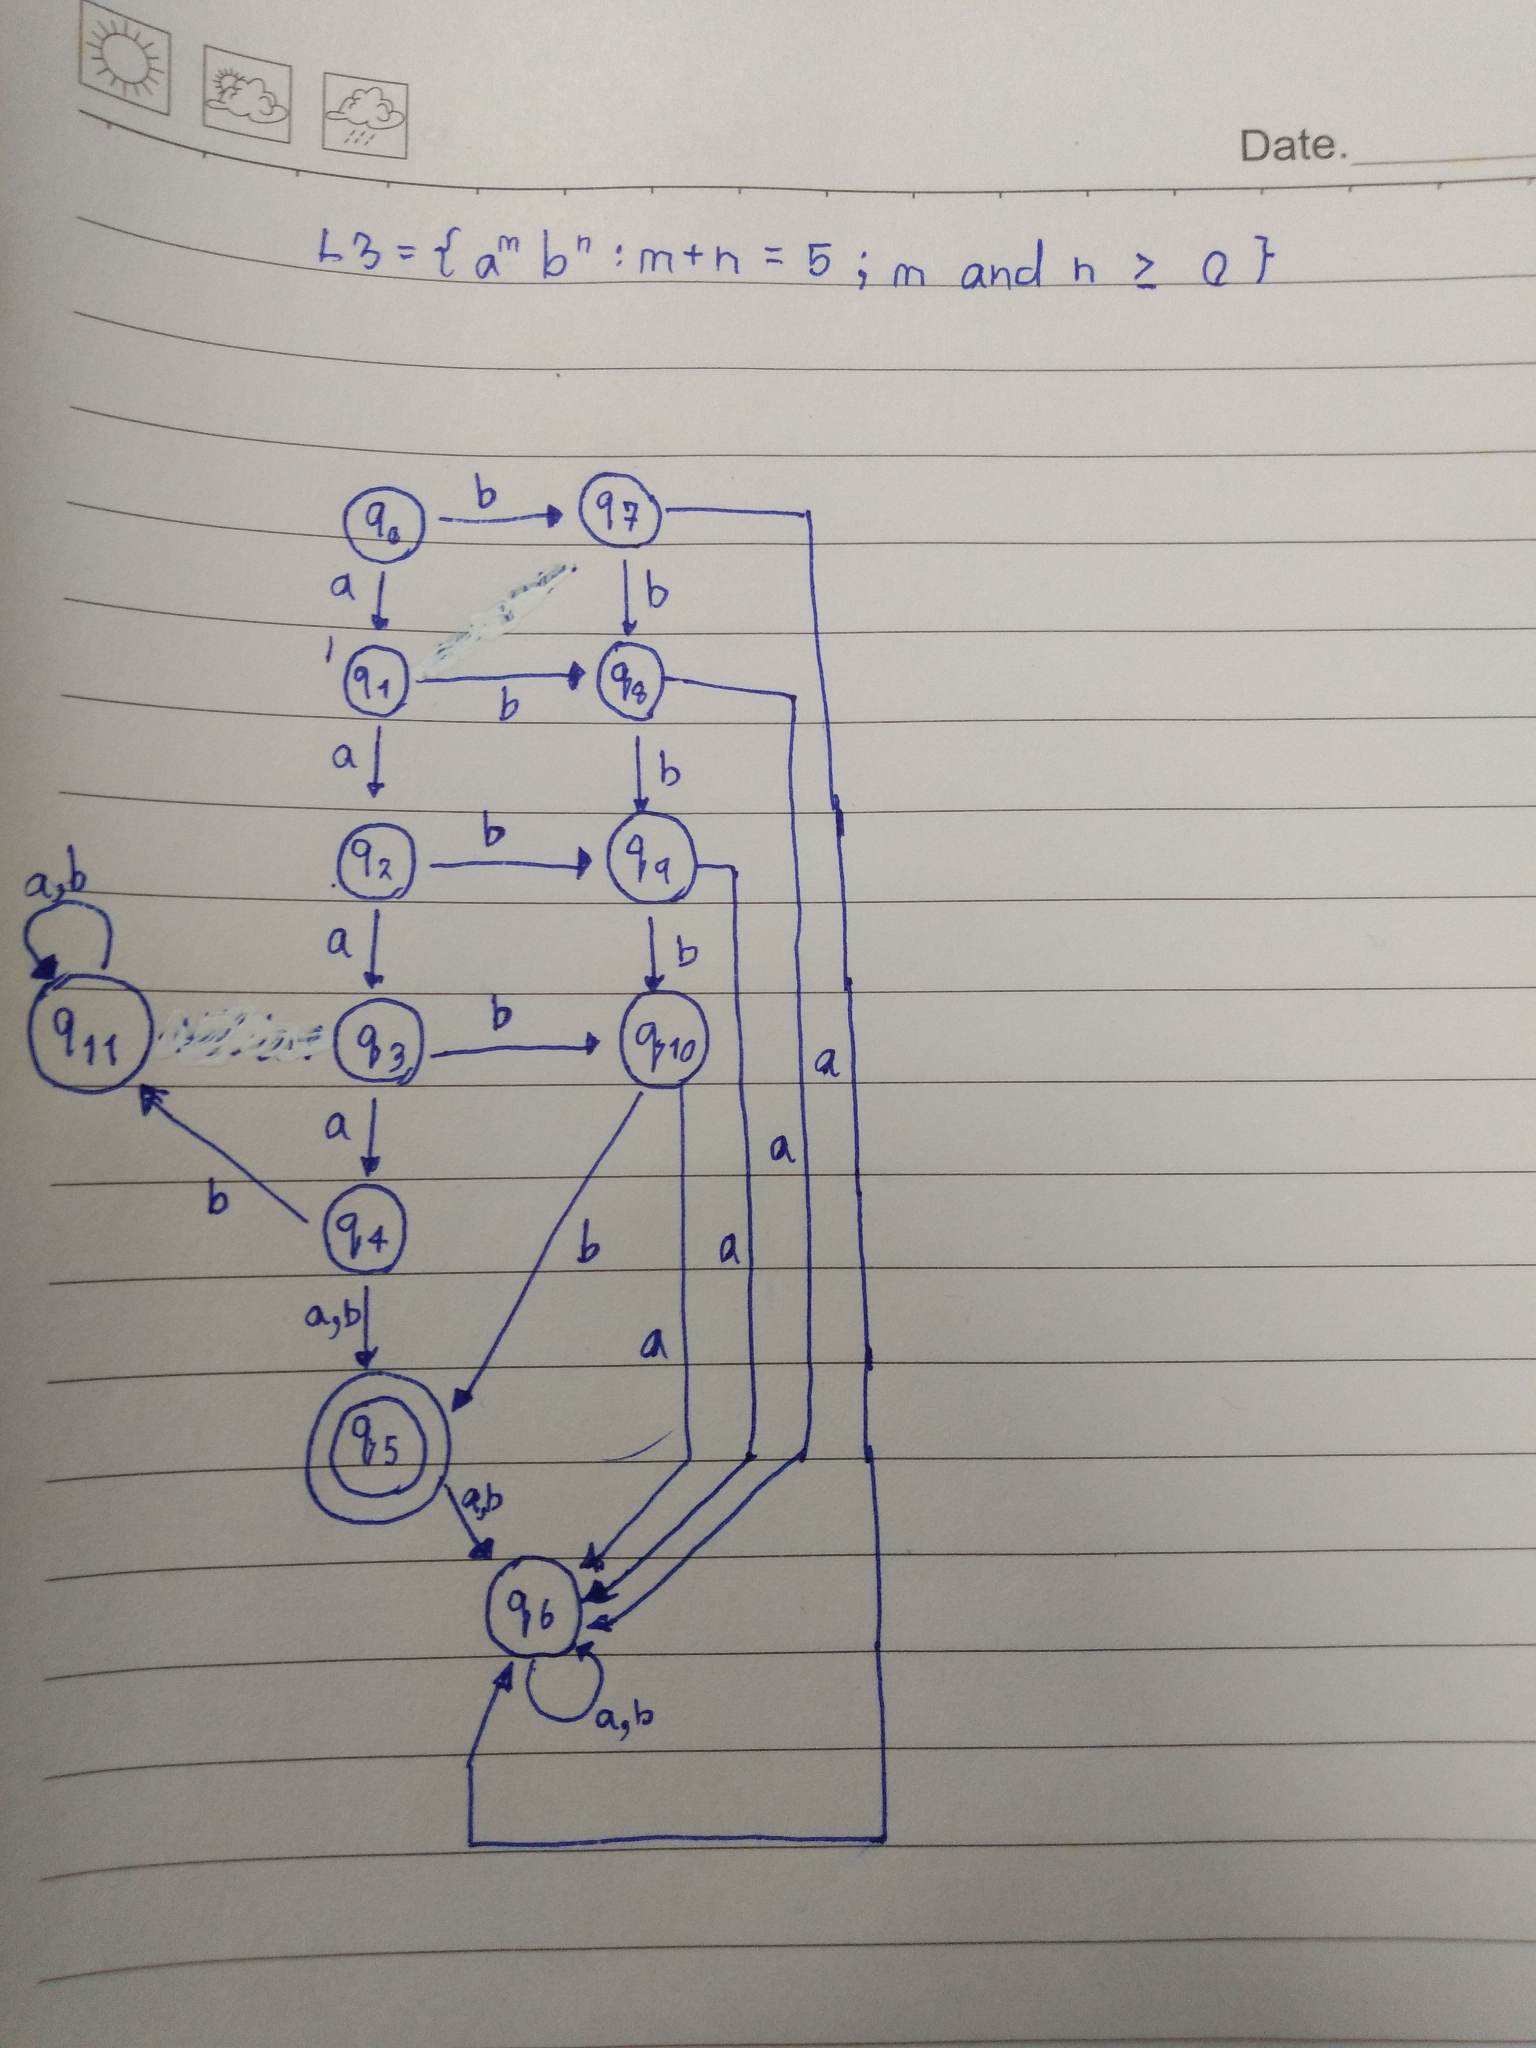 Date.
L3 = { aᵐ bⁿ : m + n = 5 ; m and n ≥ 0 }
q0 b q7
a b
q1 b q8
a b
q2 b q9
a,b
a b
q11 q3 b q10
a a
b q4 a
b a
a,b a
q5
a,b
q6
a,b